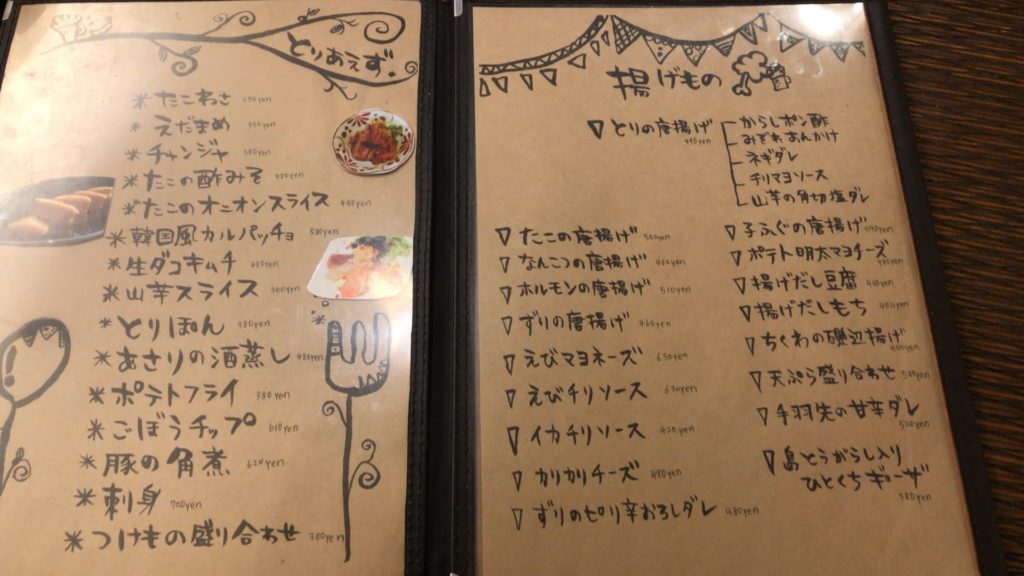 とりあえず。
＊たこわさ
＊えだまめ 350yen
＊チャンジャ 380yen
＊たこの酢みそ 480yen
＊たこのオニオンスライス 480yen
＊韓国風カルパッチョ 580yen
＊生ダコキムチ 480yen
＊山芋スライス 300yen
＊とりぽん 380yen
＊あさりの酒蒸し 480yen
＊ポテトフライ 380yen
＊ごぼうチップ 610yen
＊豚の角煮 620yen
＊刺身 700yen
＊つけもの盛り合わせ 300yen
揚げもの
▽とりの唐揚げ
からしポン酢
みぞれあんかけ
ネギダレ
チリマヨソース
山芋の角切塩ダレ
▽たこの唐揚げ 550yen
▽なんこつの唐揚げ 460yen
▽ホルモンの唐揚げ 510yen
▽ずりの唐揚げ 460yen
▽えびマヨネーズ 630yen
▽えびチリソース 630yen
▽イカチリソース 420yen
▽カリカリチーズ 480yen
▽ずりのピリ辛おろしダレ 480yen
▽子ふぐの唐揚げ 590yen
▽ポテト明太マヨチーズ
▽揚げだし豆腐
▽揚げだしもち 450yen
▽ちくわの磯辺揚げ 400yen
▽天ぷら盛り合わせ 580yen
▽手羽先の甘辛ダレ 520yen
▽島とうがらし入り
ひとくちギョーザ 380yen